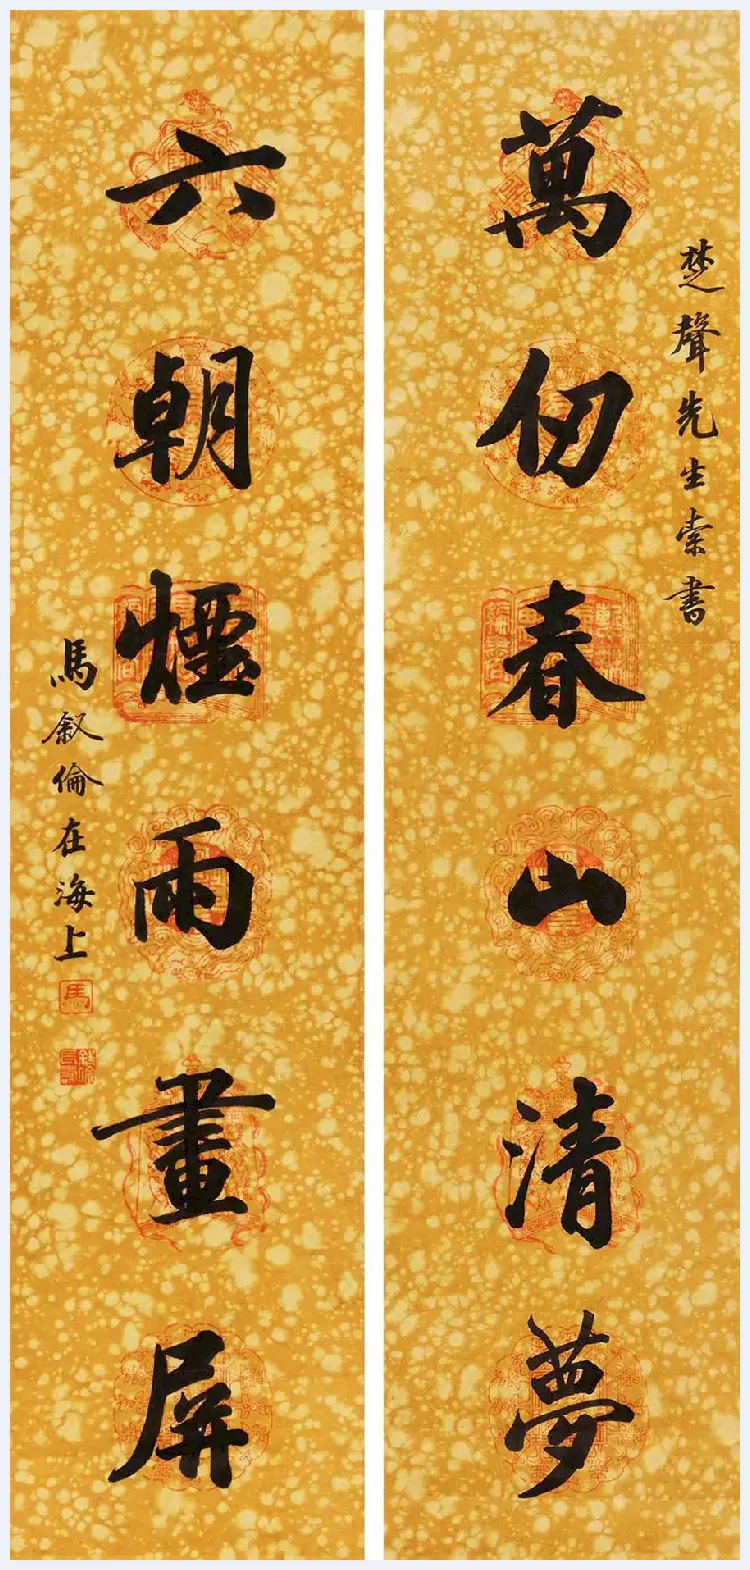 楚聲先生索書
萬仞春山清夢
六朝煙雨畫屏
馬叙倫在海上
馬